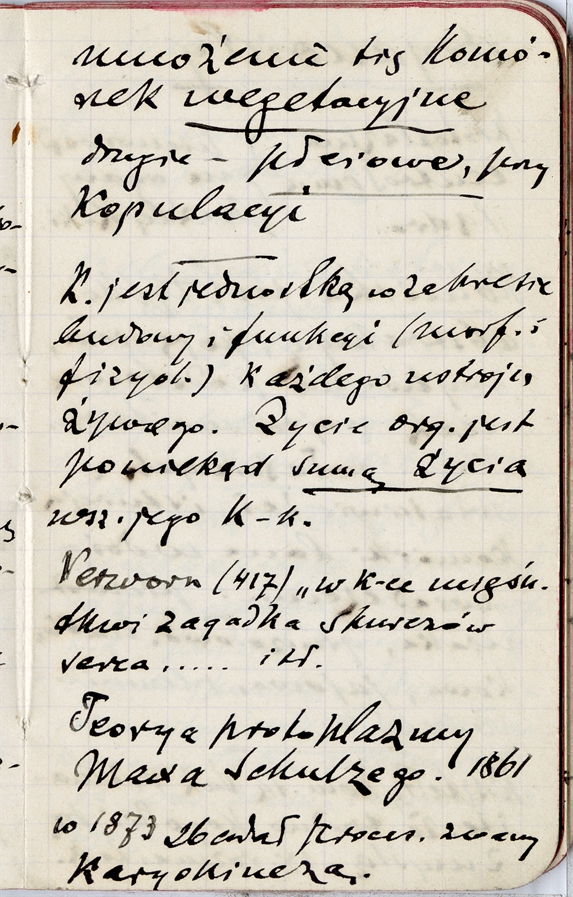 mnożenie się Komó-
rek wegetacyjne
drugie – płciowe, przy
Kopulacyi
K. jest jednostką w zakresie
budowy i funkcyi (morf. i
fizyol.) każdego ustroju
żywego. Życie org. jest
poniekąd sumą życia
wsz. jego K-k.
Verworn (417) „w K-ce mięśn.
tkwi zagadka skurczów
serca ..... itd.
Teorya protoplazmy
Maxa Schultzego. 1861
w 1873 zbadał proces. zwany
Karyokinezą.